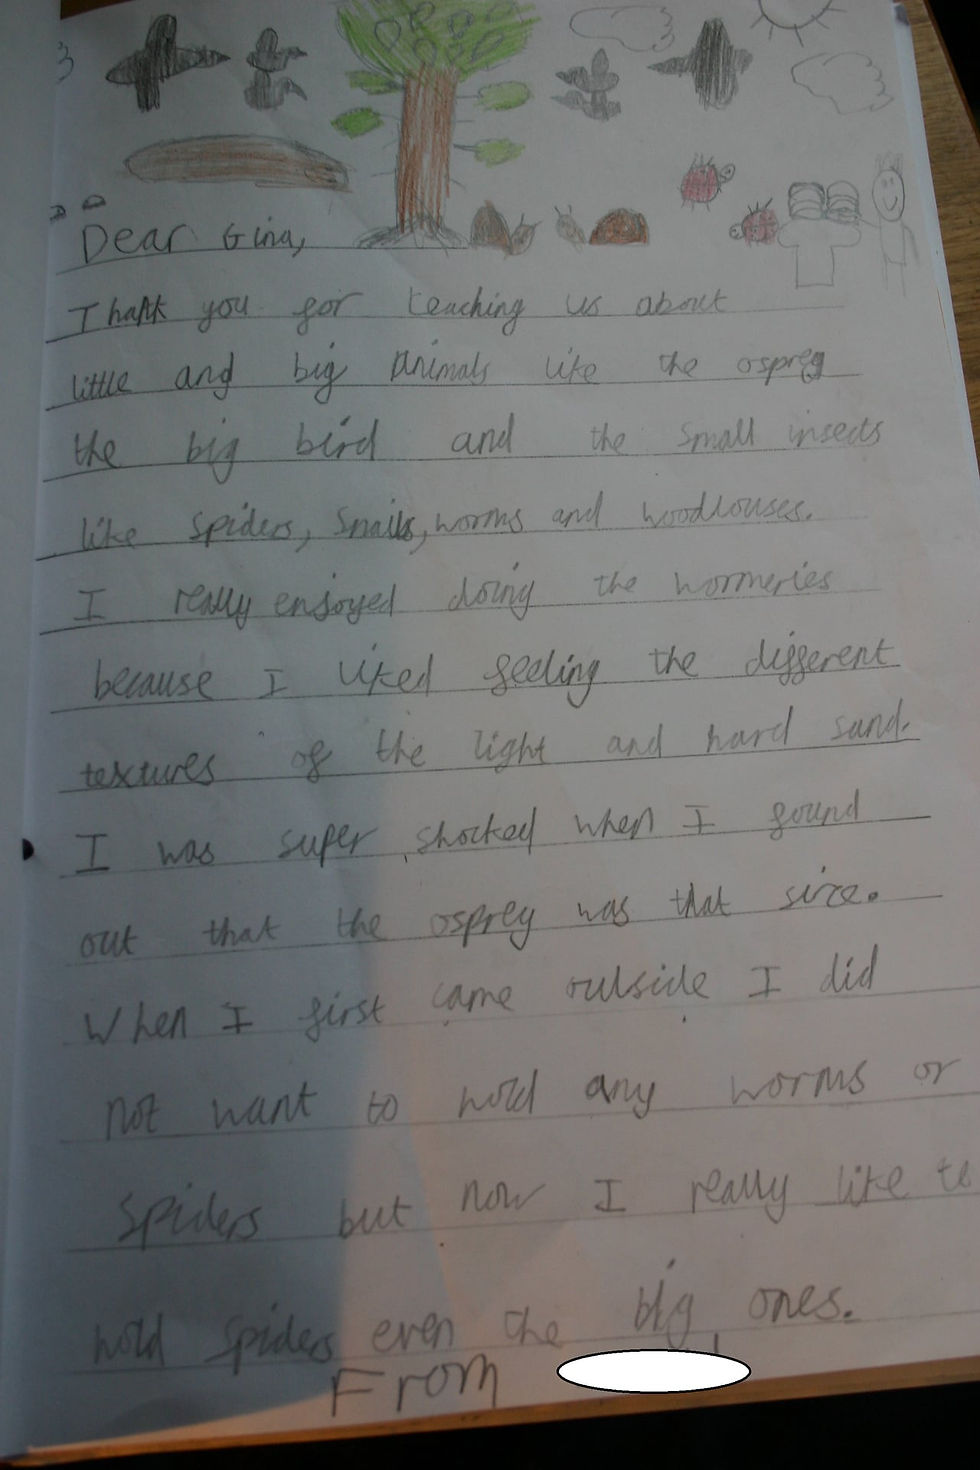 Dear Gina,
Thank you for teaching us about
little and big Animals like the osprey
the big bird and the small insects
like spiders, Snails, worms and woodlouses.
I really enjoyed doing the wormeries
because I liked feeling the different
textures of the light and hard sand.
I was super shocked when I found
out that the osprey was that size.
When I first came outside I did
not want to hold any worms or
spiders but now I really like to
hold spiders even the big ones.
From